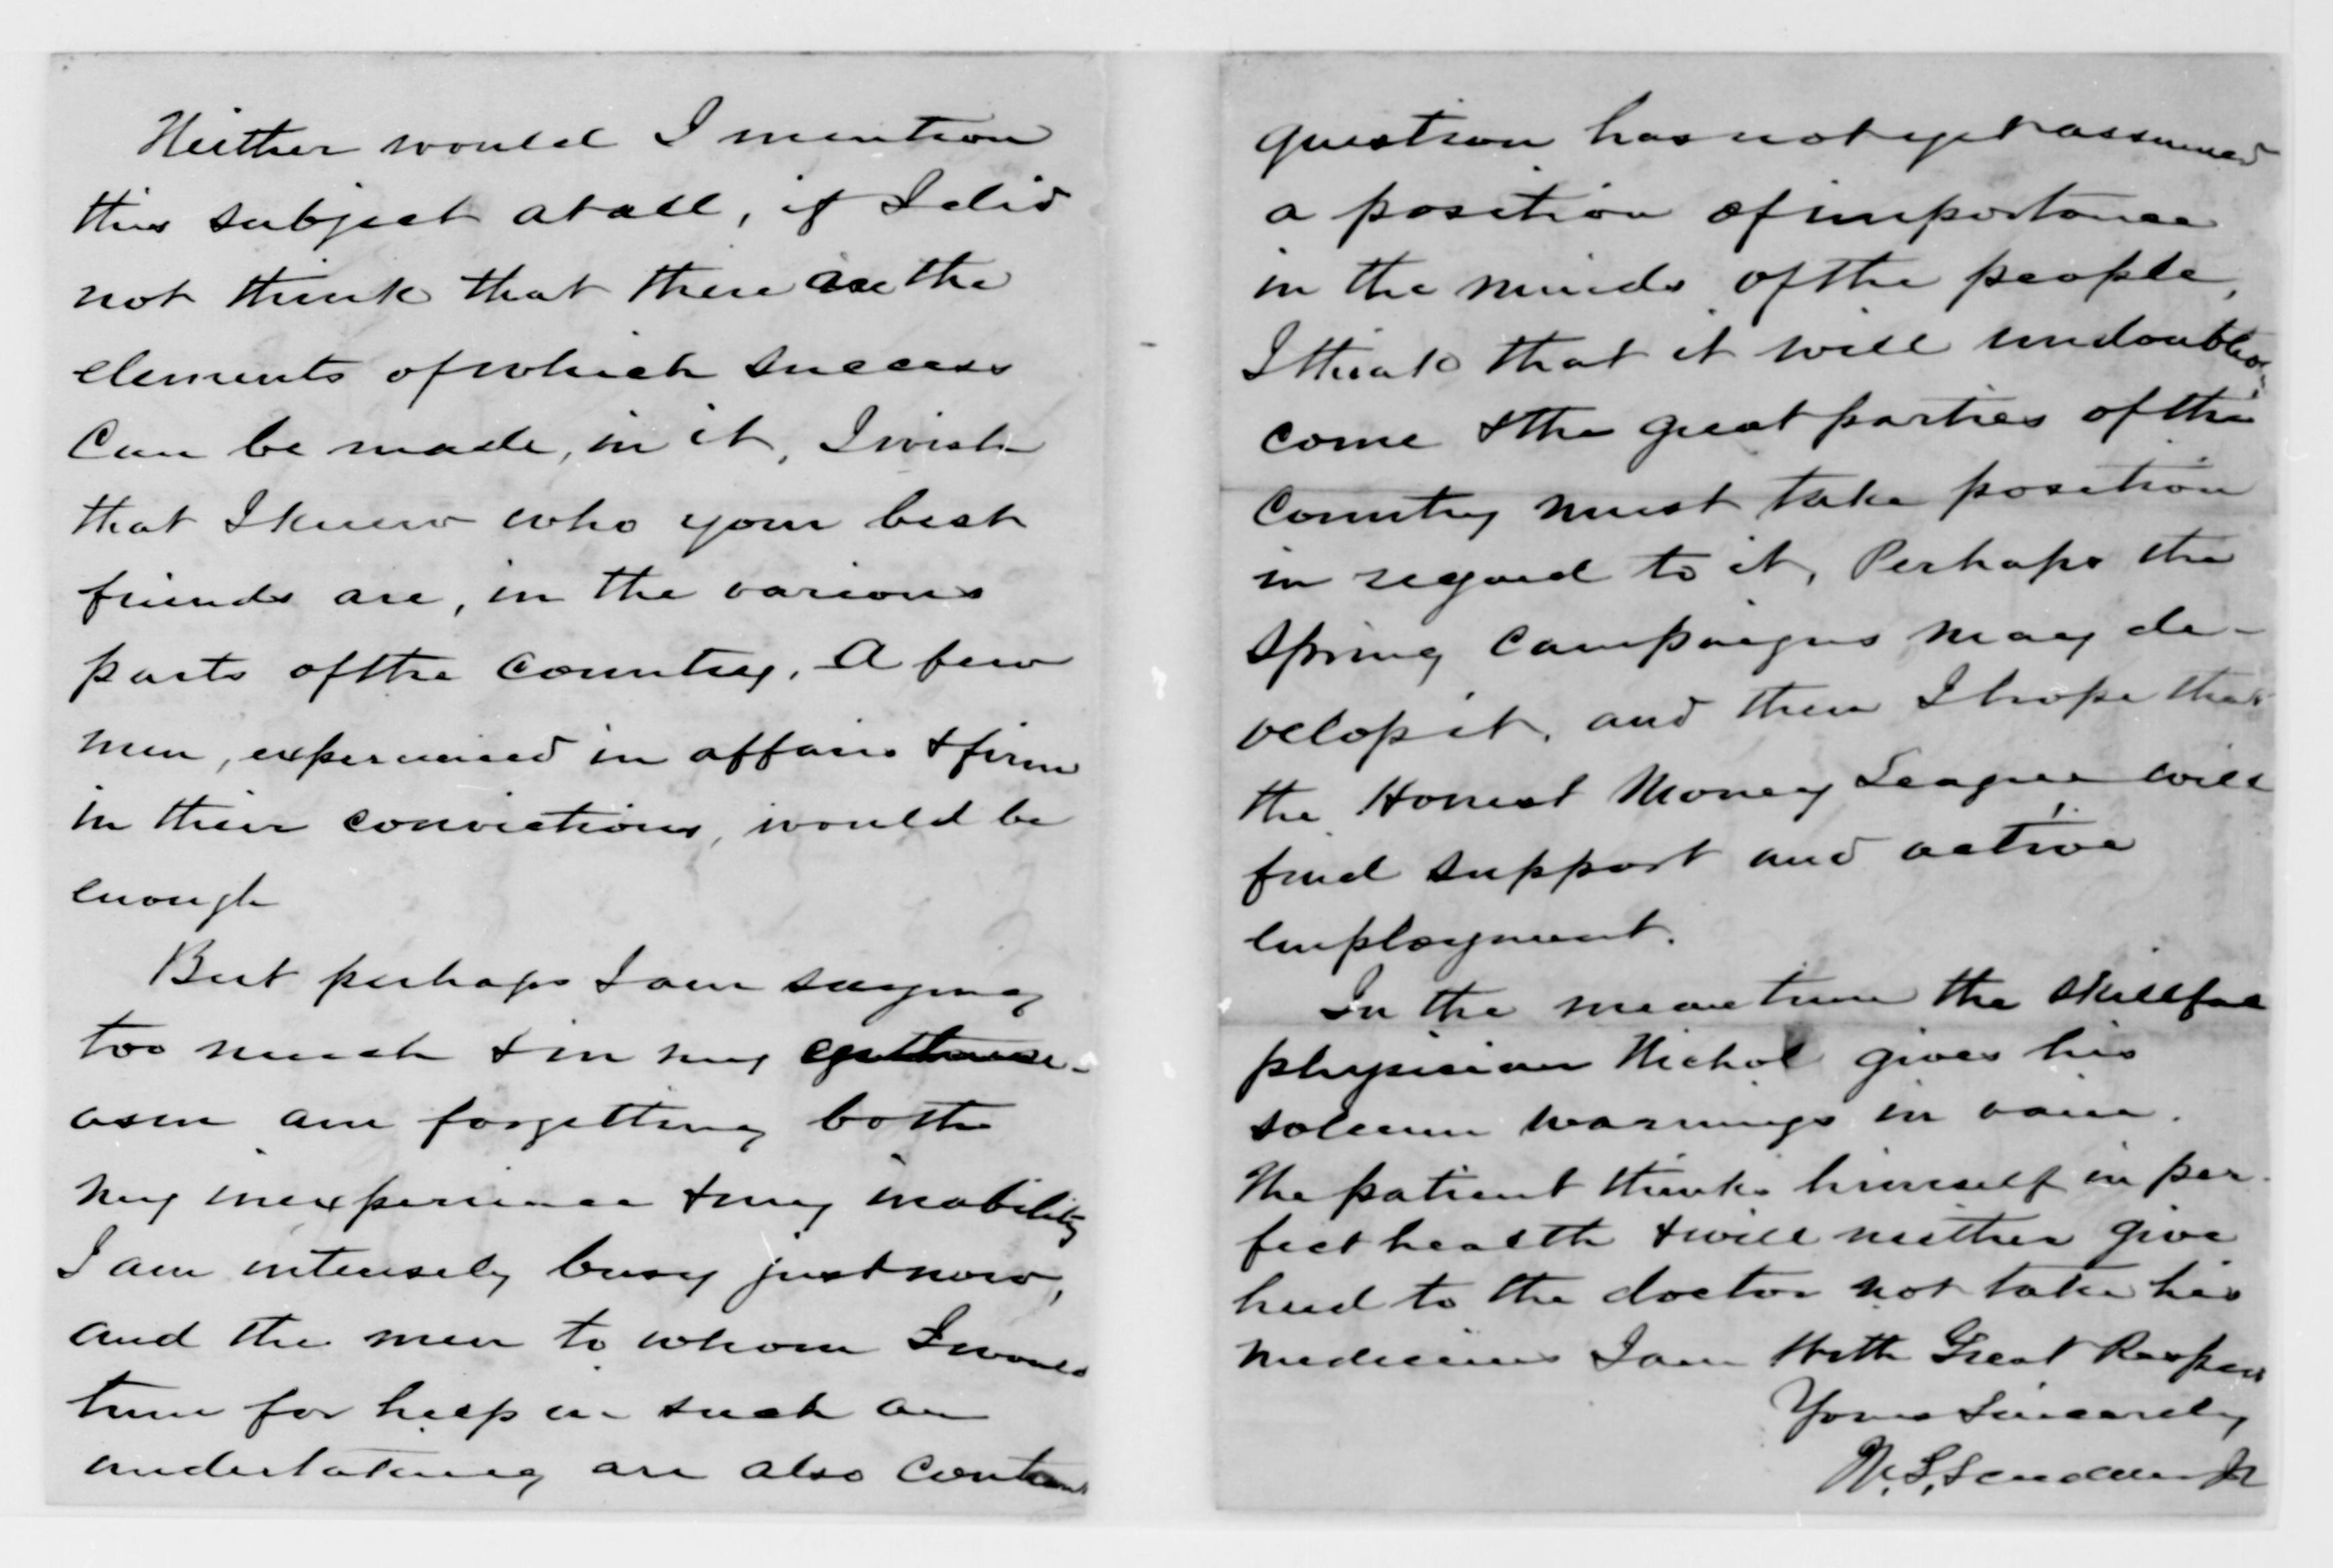 Neither would I mention
this subject at all, if I did
not think that there are the
elements of which success
can be made, in it, I wish
that I knew who your best
friends are, in the various
parts of the country. A few
men, experienced in affairs & firm
in their convictions, would be
enough
But perhaps I am saying
too much & in my
asm am forgetting both
my inexperience & my inability
I am intensely busy just now,
and the men to whom I would
turn for help in such an
undertaking are also
question has not yet assumed
a position of importance
in the minds of the people,
I think that it will
come & the great parties of the
country must take position
in regard to it, Perhaps the
spring campaigns may de-
velop it, and then I hope that
the Honest Money League will
find support and active
employment.
In the mean time the skillful
physician Nichol gives his
solemn warnings in vain.
The patient thinks himself in per-
fect health & will neither give
heed to the doctor not take his
medicines I am With Great Respect
Yours Sincerely